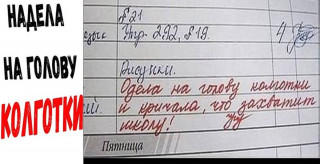 НАДЕЛА
НА ГОЛОВУ
КОЛГОТКИ
§21
Упр. 292, §19.
4
Рисунки.
Одела на голову колготки
и кричала, что захватит
школу!
Пятница